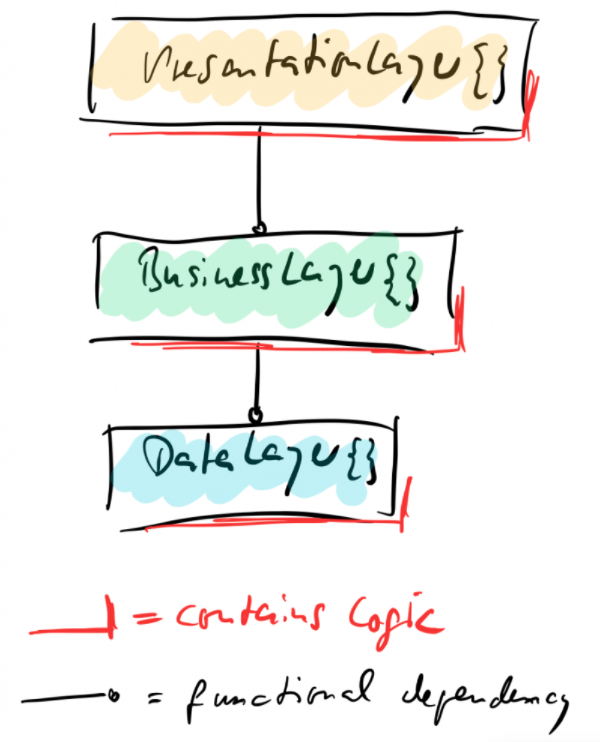 PresentationLayer{}
BusinessLayer{}
DataLayer{}
= contains logic
= functional dependency